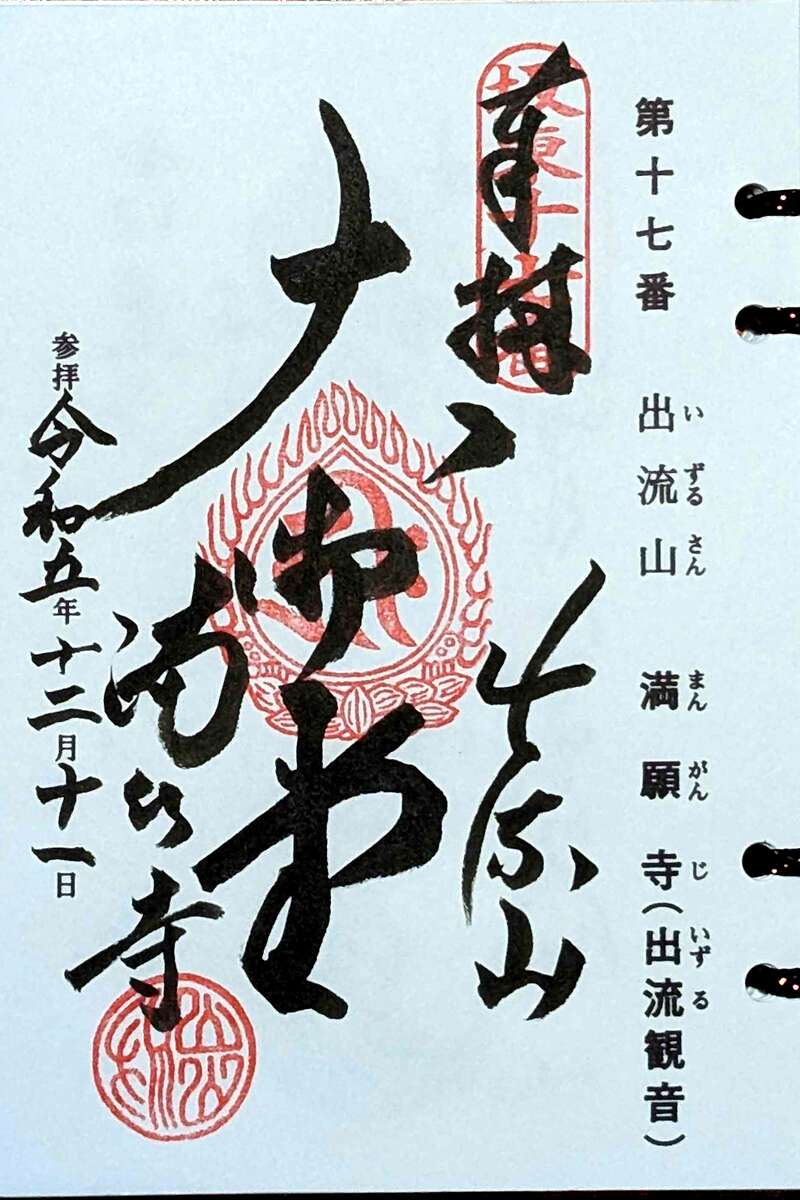 第十七番 出流山 満願寺(出流観音)
い ずる さん まん がん じ いず る
奉拝
坂東十七番
出流山
大御堂
満願寺
参拝 令和五年十二月十一日